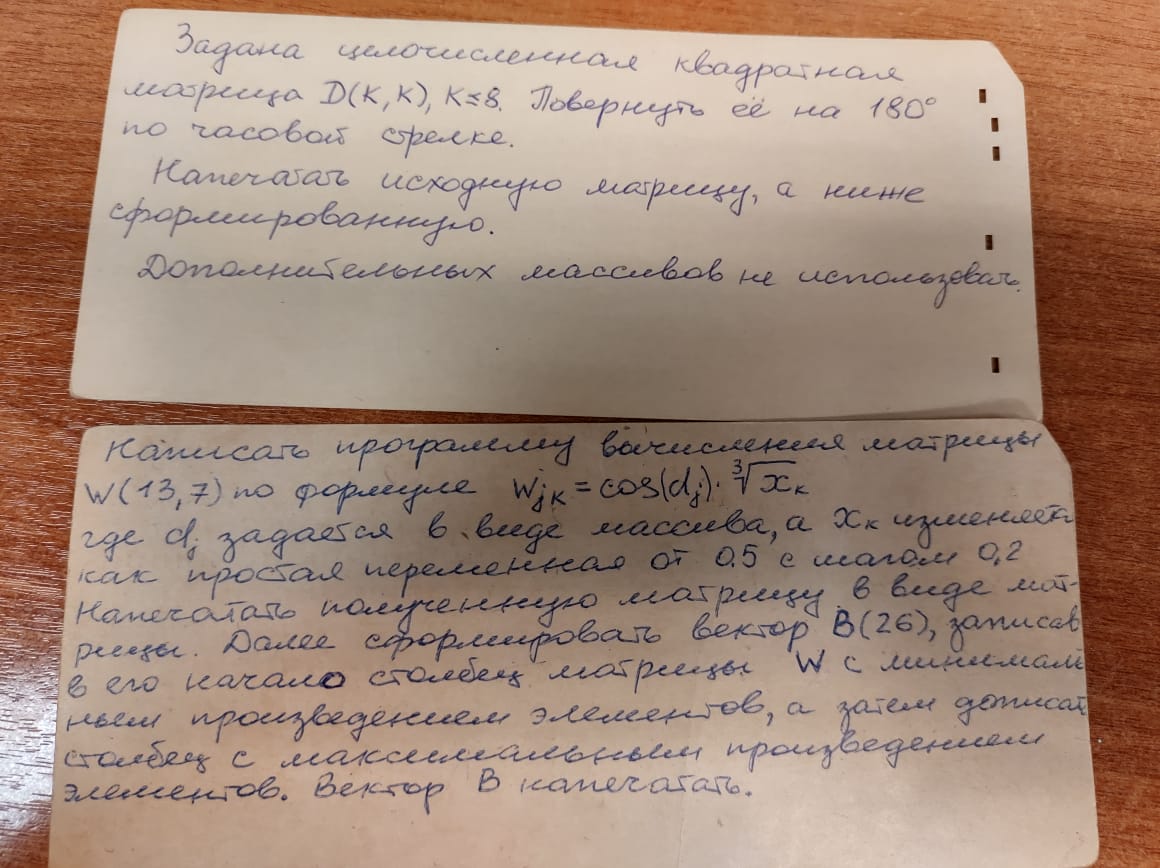 Задана целочисленная квадратная
матрица D(K,K), K≤8. Повернуть её на 180°
по часовой стрелке.
Напечатать исходную матрицу, а ниже
сформированную.
Дополнительных массивов не использовать.
Написать программу вычисления матрицы
W(13,7) по формуле W_jk = cos(d_j)·∛x_k
где d_j задаётся в виде массива, а X_k изменяется
как простая переменная от 0.5 с шагом 0,2
Напечатать полученную матрицу в виде мат-
рицы. Далее сформировать вектор B(26), записав
в его начало столбец матрицы W с минималь
ным произведением элементов, а затем дописать
столбец с максимальным произведением
элементов. Вектор B напечатать.